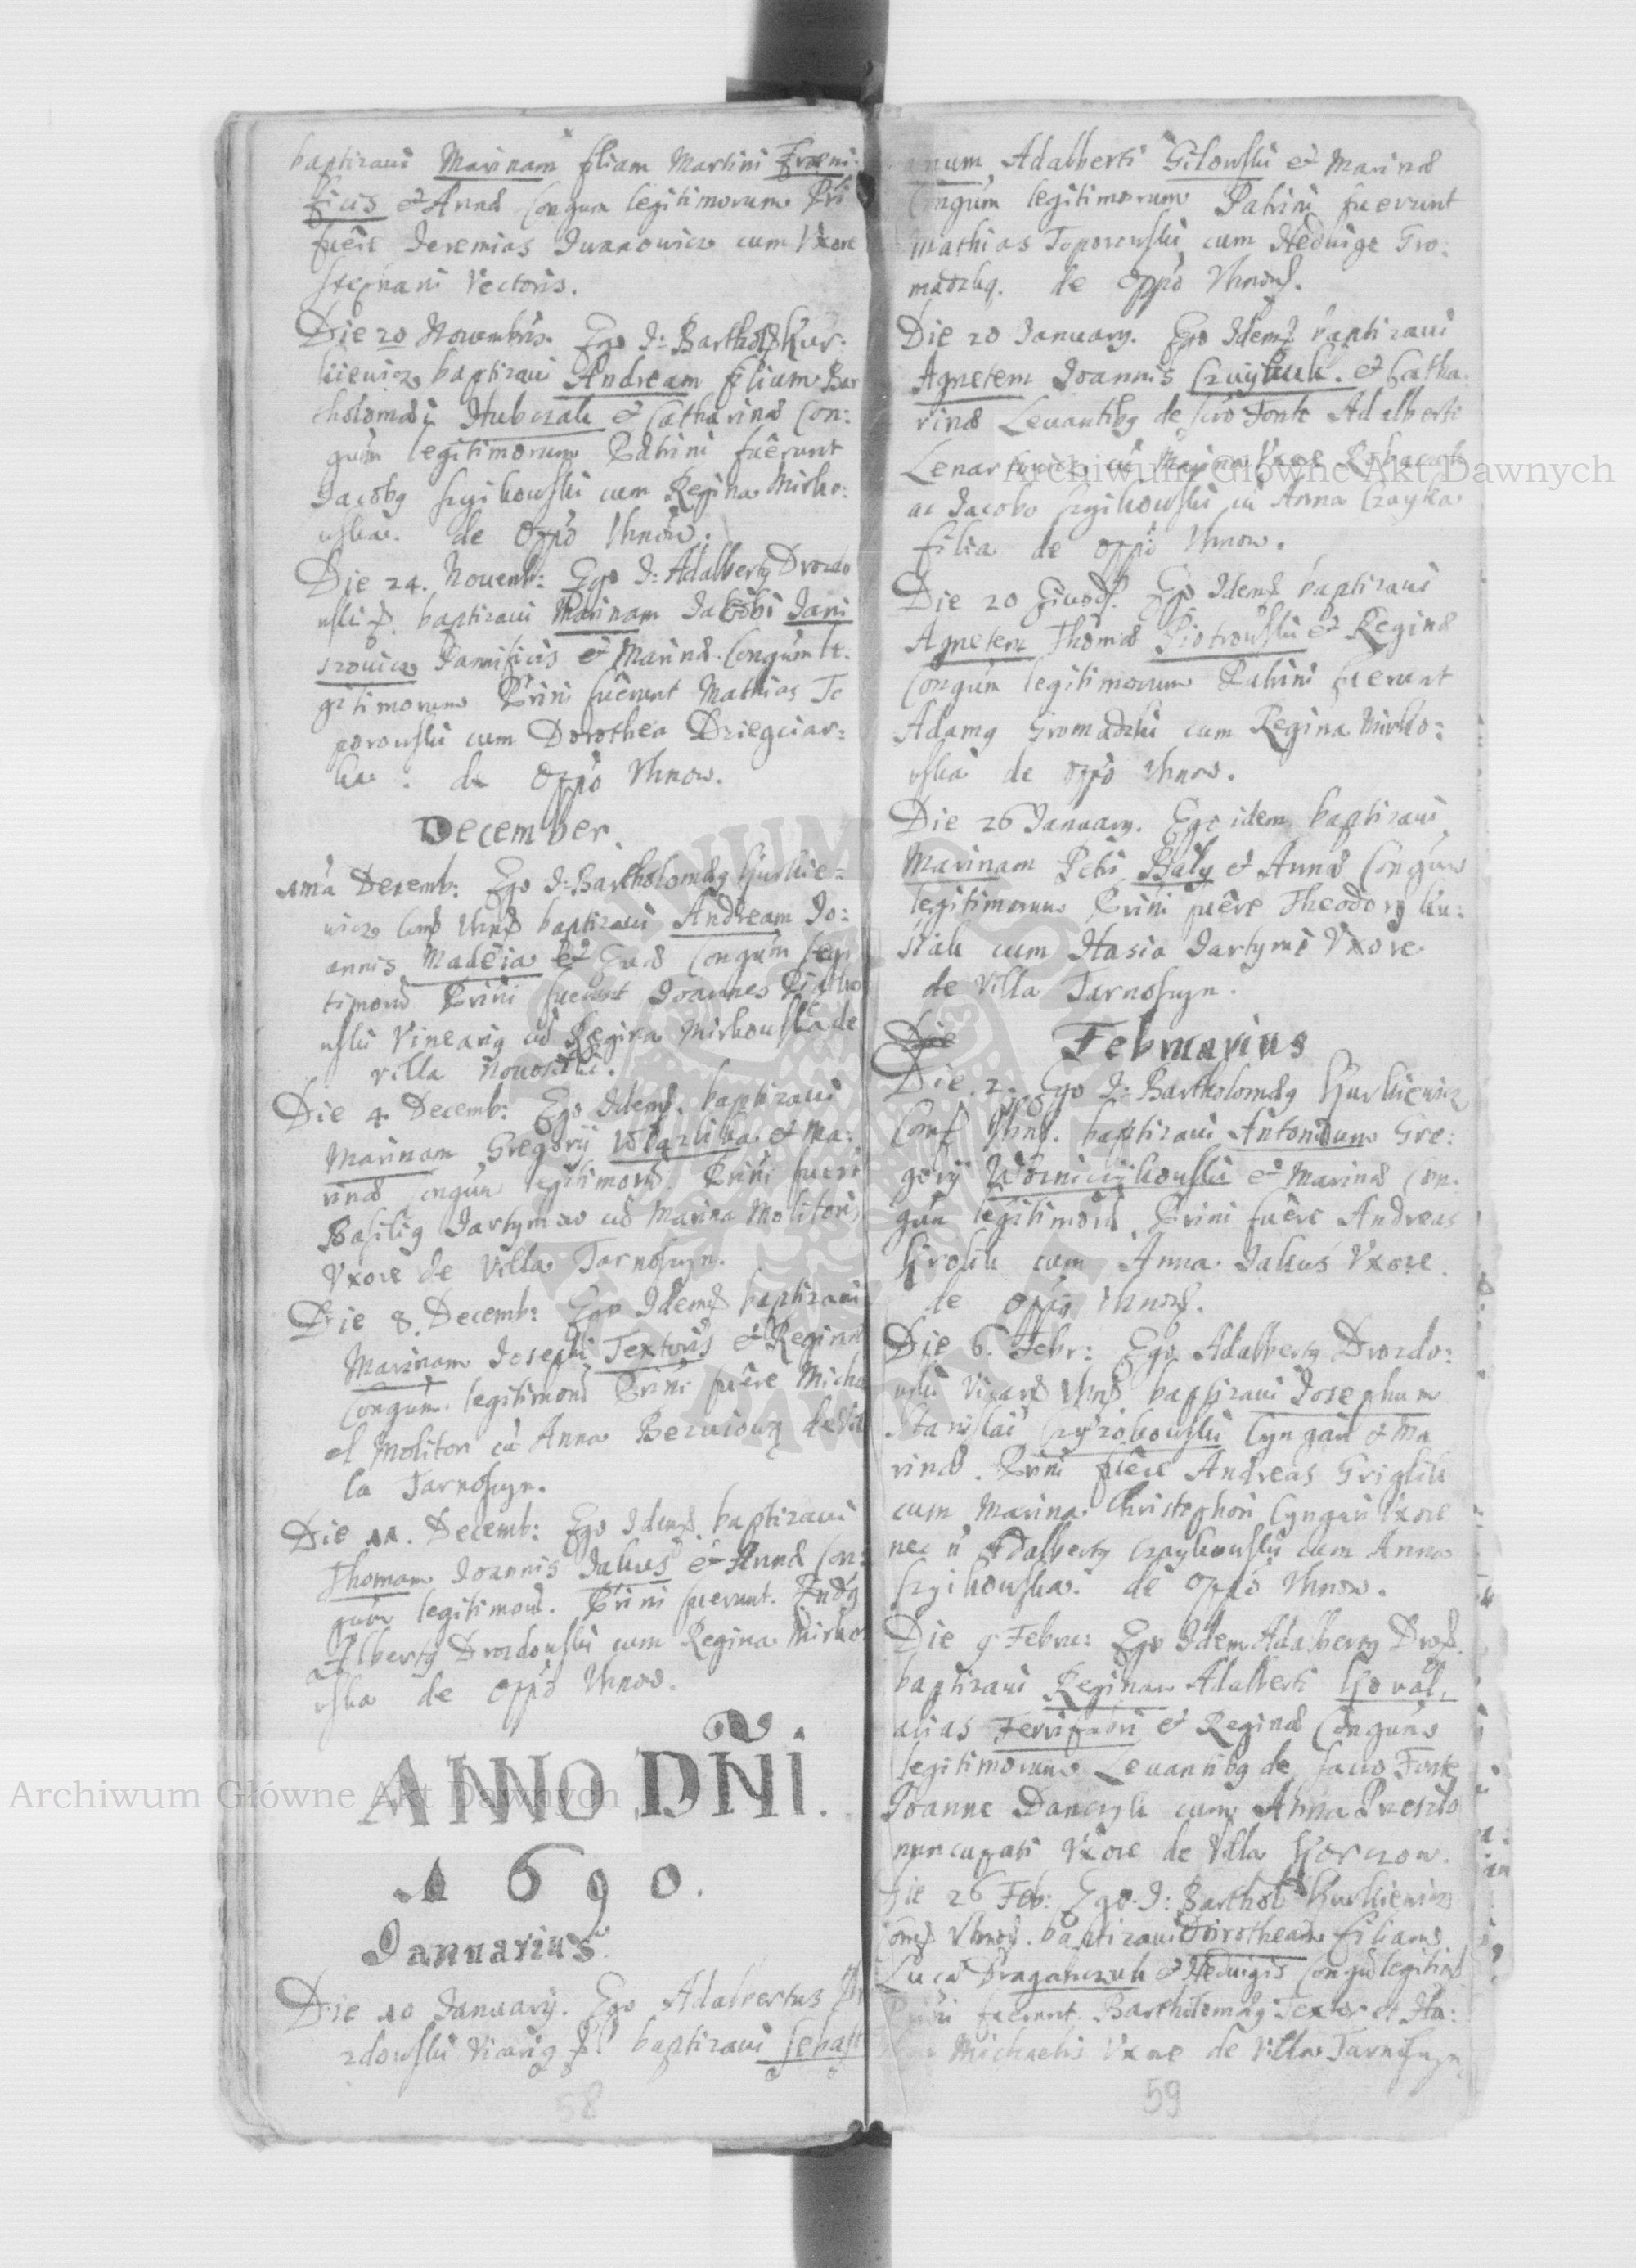 baptizaui Marinam filiam Martini Fræni-
ficis et Annæ Congum legitimorum Pri
fuêre Jeremias Iwanowicz cum Vxore
Stephani Vectoris.
Die 20 Nouembris. Ego I: Barthol Kur:
kiewicz baptizaui Andream filium Bar
tholomæi Hubczak et Catharinæ Con:
gum legitimorum Patrini fuêrunt
Iacobg Szyikowski cum Regina Mirko:
wska. de Oppo Vhnow.
Die 24. Nouemb: Ego I: Adalbertg Drozdo
wski baptizaui Marinam Jakobi Jani
szowicz Pannificis et Marinæ Congum le:
gitimorum Prini fuêrunt Mathias To
porowski cum Dorothea Dziegciar:
ka. de Oppo Vhnow.
December.
1ma Decemb: Ego I: Bartholomæg Kurkie-
wicz baptizaui Andream Io:
annis Madeia et Euæ Congum legi
timorum Prini fuerunt Joannes
wski Vinearig cu Regina Mirkowska de
villa Nouosiolki.
Die 4 Decemb: Ego Idem baptizaui
Marinam Gregorij Wlazlika et Ma:
rinæ Congum legitimoru Prini fueru
Basilig Jartymow cu Marina Molitoris
Vxore de Villa Tarnoszyn.
Die 8. Decemb: Ego Idem baptizaui
Marinam Josephi Textoris et Reginæ
Congum legitimoru Prini fuêre Micha
el Molitor cu Anna de vil
la Tarnoszyn.
Die 11. Decemb: Ego Idem baptizaui
Thomam Joannis Jakus et Annæ Con:
gum legitimoru. Prini fuerunt.
Albertg Drozdowski cum Regina Mirko
wska de Oppo Vhnow.
ANNO DÑI.
1690.
Januarius
Die 10 January. Ego Adalbertus Dr
zdowski Vicarig baptizaui Sebast
58
ianum Adalberti Gilowski et Marinæ
Congum legitimorum Patrini fuerunt
Mathias Toporowski cum Hedvige Gro:
madzką. de Oppo Vhnow.
Die 20 January. Ego Idem baptizaui
Agnetem Joannis et Catha
rinæ Leuantibg de Scro Fonte Adalberto
Lenartowicz cu Marina
ac Iacobo Szyikowski cu Anna Czayka
filia de Oppo Vhnow.
Die 20 Eiusd. Ego Idem baptizaui
Agnetem Thomæ Piotrowski et Reginæ
Congum legitimorum Patrini fuerunt
Adamg Gromadzki cum Regina Mirko:
wska de Oppo Vhnow.
Die 26 January. Ego idem baptizaui
Marinam Petri Bialy et Annæ Congum
legitimorum Prini fuêre Theodorg
cum Hasia Jartymi Vxore
de Villa Tarnoszyn.
Die Februarius
Die 2. Ego I: Bartholomæg Kurkiewicz
baptizaui Antonium Gre:
gorij et Marinæ Con.
gum legitimoru Prini fuêre Andreas
Krolik cum Anna Jakus Vxore
de Oppo Vhnow.
Die 6. Febr: Ego Adalbertg Drozdo:
wski Vicari Vhn baptizaui Josephum
Stanislai et Ma
rinæ. Prini fuêre Andreas Griglik
cum Marina Christophori Vxore
nec n Adalbertg Czaykowski cum Anna
Szyikowska. de Oppo Vhnow.
Die 9 Febru: Ego Idem Adalbertg Droz.
baptizaui Reginam Adalberti Koval.
alias Ferrifabri et Reginæ Congum
legitimorum Leuantibg de Sacro Fonte
Joanne Danczyk cum Anna
nuncupati Vxore de Villa Korczow.
Die 26 Feb: Ego I: Barthol Kurkiewicz
baptizaui Dorotheam filiam
Lucæ Draganczuk et Hedvigis Congu legitim
Patrini fuerunt. Bartholomæg Textor et Ha:
Michaelis Vxore de Villa Tarnoszyn
59
Archiwum Główne Akt Dawnych
Archiwum Główne Akt Dawnych